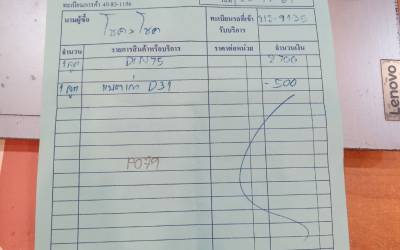 ทะเบียนการค้า 40-83-1156
นามผู้ซื้อ โชคอโชค ทะเบียนรถที่เข้ารับบริการ 9135
จำนวน รายการสินค้าหรือบริการ ราคาต่อหน่วย จำนวนเงิน
1 ลูก DIN75 2700
1 ลูก แบตเก่า D31 -500
P079
Lenovo